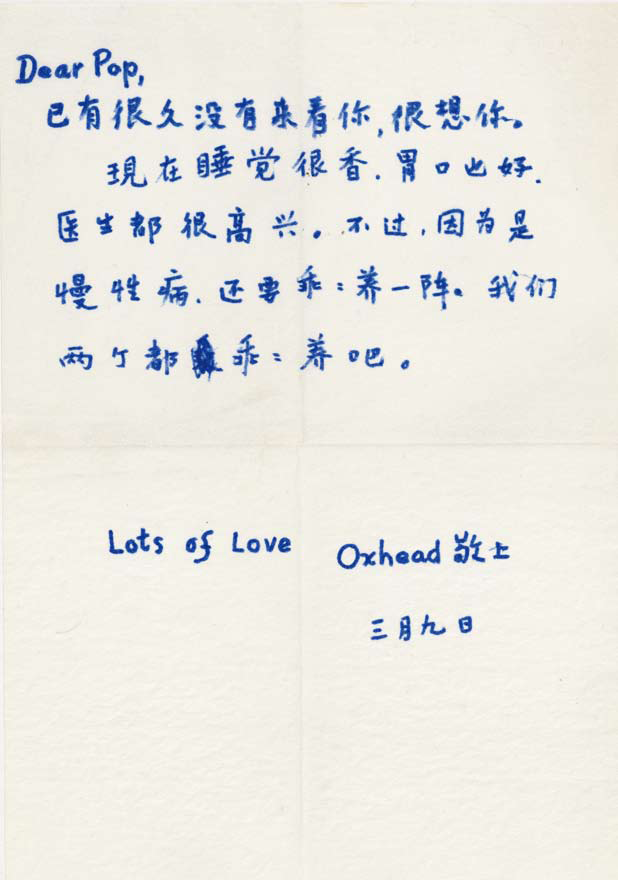 Dear Pop,
已有很久没有来看你,很想你。
現在睡觉很香.胃口也好.
医生都很高兴。不过,因为是
慢性病.还要乖:养一阵。我们
两个都乖:养吧。
Lots of Love Oxhead 敬上
三月九日